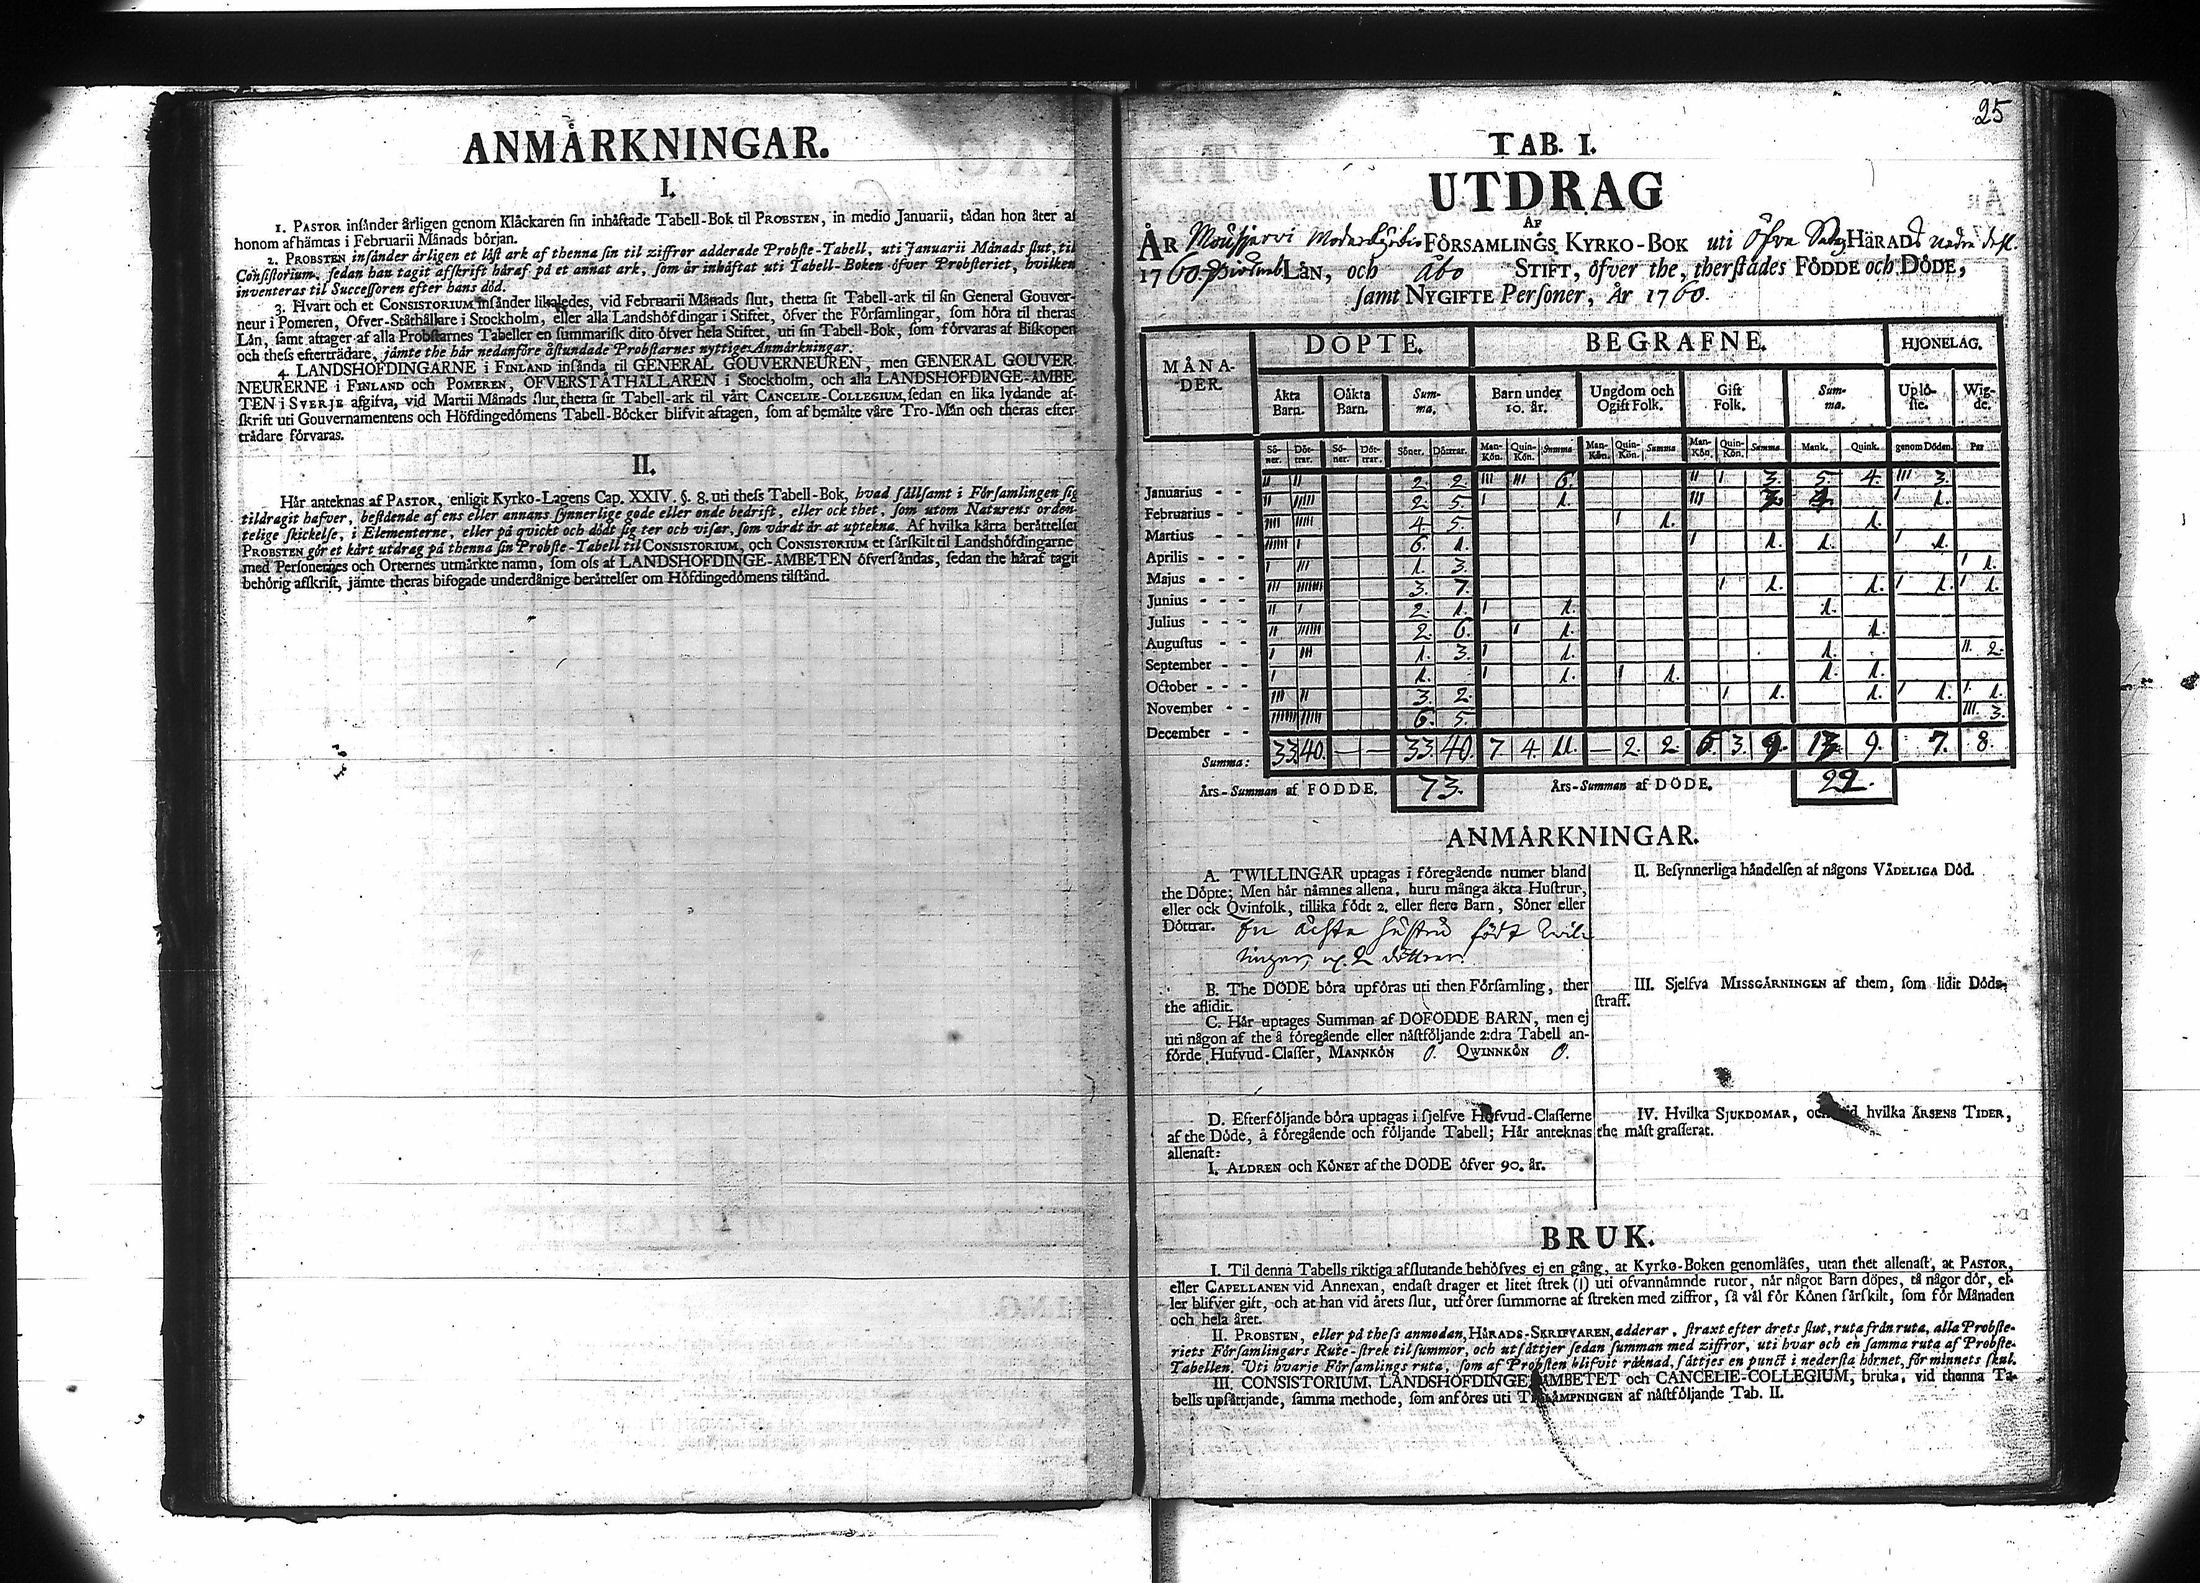 ANMÅRKNINGAR.
I.
1. PASTOR insånder årligen genom Klåckaren sin inhåftade Tabell-Bok til PROBSTEN, in medio Januarii, tådan hon åter af
honom afhåmtas i Februarii Månads början.
2. PROBSTEN insånder årligen et låst ark af thenna sin til ziffror adderade Probste-Tabell, uti Januarii Månads slut, til
Consistorium, sedan han tagit afskrift håraf på et annat ark, som år inhåftat uti Tabell-Boken öfver Probsteriet, hvilken
inventeras til Successoren efter hans död.
3. Hvart och et CONSISTORIUM insånder likaledes, vid Februarii Månads slut, thetta sit Tabell-ark til sin General Gouver-
neur i Pomeren, Ofver-Ståthållare i Stockholm, eller alla Landshöfdingar i Stiftet, öfver the Församlingar, som höra til theras
Lån, samt aftager af alla Probstarnes Tabeller en summarisk dito öfver hela Stiftet, uti sin Tabell-Bok, som förvaras af Biskopen
och thess efterträdare, jämte the hår nedanföre åstundade Probstarnes nyttige Anmårkningar.
4. LANDSHOFDINGARNE i FINLAND insånda til GENERAL GOUVERNEUREN, men GENERAL GOUVER-
NEURERNE i FINLAND och POMEREN, OFVERSTÅTHÅLLAREN i Stockholm, och alla LANDSHOFDINGE-ÅMBE-
TEN i SVERJE afgifva, vid Martii Månads slut, thetta sit Tabell-ark til vårt CANCELIE-COLLEGIUM, sedan en lika lydande af-
skrift uti Gouvernamentens och Höfdingedömens Tabell-Böcker blifvit aftagen, som af bemålte våre Tro-Mån och theras efter
trådare förvaras.
II.
Hår anteknas af PASTOR, enligit Kyrko-Lagens Cap. XXIV. §. 8. uti thess Tabell-Bok, hvad sållsamt i Församlingen sig
tildragit hafver, bestående af ens eller annans synnerlige gode eller onde bedrift, eller ock thet, som utom Naturens orden-
telige skickelse, i Elementerne, eller på qvickt och dödt sig ter och visar, som vårdt år at uptekna. Af hvilka kårta beråttelser
PROBSTEN gör et kårt utdrag på thenna sin Probste-Tabell til CONSISTORIUM, och CONSISTORIUM et sårskilt til Landshöfdingarne
med Personernes och Orternes utmårkte namn, som oss af LANDSHOFDINGE-ÅMBETEN öfversåndas, sedan the håraf tagit
behörig afskrift, jämte theras bifogade underdånige beråttelser om Höfdingedömens tilstånd.
25
TAB. I.
UTDRAG
AF
ÅR Mouhijervi Moderkyrkio FÖRSAMLINGS KYRKO-BOK uti Öfre HÄRADS nedra
1760. LÅN, och Åbo STIFT, öfver the, therstådes FÖDDE och DÖDE,
samt NYGIFTE Personer, År 1760.
MÅNA-DER. DÖPTE. BEGRAFNE. HJONELAG.
Åkta Barn. Oåkta Barn. Sum-ma. Barn under 10. år. Ungdom och Ogift Folk. Gift Folk. Sum-ma. Uplö-ste. Wig-de.
Sö-ner. Döt-trar. Sö-ner. Döt-trar. Söner. Döttrar. Man-Kön. Quin-Kön. Summa Man-Kön. Quin-Kön. Summa Man-Kön. Quin-Kön. Summa Mank. Quink. genom Döden. Par
Januarius - - II II 2. 2. III III 6. II I 3. 5. 4. III 3.
Februarius - - II IIIII 2. 5. I 1. III I 1.
Martius - - - IIII IIIII 4. 5. I 1. 1.
Aprilis - - - IIIIII I 6. 1. I 1. 1. I 1.
Majus - - I III 1. 3. I 1.
Junius - - - III IIIIIII 3. 7. I 1. 1. I 1. I 1.
Julius - - - II I 2. 1. I 1. 1.
Augustus - - II IIIIII 2. 6. I 1. 1.
September - - I III 1. 3. I 1. 1. II. 2.
October - - - I 1. I 1. I 1. 1. 1.
November - - III II 3. 2. I 1. 1. I 1. I. 1.
December - - IIIIII IIIII 6. 5. III. 3.
Summa: 33. 40. — — 33. 40. 7. 4. 11. — 2. 2. 6. 3. 9. 13. 9. 7. 8.
Års-Summan af FÖDDE. 73. Års-Summan af DÖDE. 22.
ANMARKNINGAR.
A. TWILLINGAR uptagas i föregående numer bland
the Döpte; Men hår nåmnes allena, huru många äkta Hustrur,
eller ock Qvinfolk, tillika födt 2. eller flere Barn, Söner eller
Döttrar. En ächta hustru födt twil-
lingar, 2 döttrar.
B. The DÖDE böra upföras uti then Församling, ther
the aflidit.
C. Hår uptages Summan af DÖFÖDDE BARN, men ej
uti någon af the å föregående eller nåstföljande 2:dra Tabell an-
förde Hufvud-Classer, MANNKÖN 0. QWINNKÖN 0.
D. Efterföljande böra uptagas i sjelfve Hufvud-Classerne
af the Döde, å föregående och följande Tabell; Hår anteknas
allenast:
I. ALDREN och KÖNET af the DÖDE öfver 90. år.
II. Besynnerliga håndelsen af någons VÅDELIGA Död.
III. Sjelfva MISSGÅRNINGEN af them, som lidit Döds-
straff.
IV. Hvilka SJUKDOMAR, och vid hvilka ÅRSENS TIDER,
the måst grasserat.
BRUK.
I. Til denna Tabells riktiga afslutande behöfves ej en gång, at Kyrko-Boken genomläses, utan thet allenast, at PASTOR,
eller CAPELLANEN vid Annexan, endast drager et litet strek (I) uti ofvannåmnde rutor, når något Barn döpes, tå någor dör, el-
ler blifver gift, och at han vid årets slut, utförer summorne af streken med ziffror, så vål för Könen sårskilt, som för Månaden
och hela året.
II. PROBSTEN, eller på thess anmodan, HÅRADS-SKRIFVAREN, adderar, straxt efter årets slut, ruta från ruta, alla Probste-
riets Församlingars Rute-strek til summor, och utsåttjer sedan summan med ziffror, uti hvar och en samma ruta af Probste-
Tabellen. Uti hvarje Församlings ruta, som af Probsten blifvit råknad, såttjes en punct i nedersta hörnet, för minnets skul.
III. CONSISTORIUM, LANDSHOFDINGE-ÅMBETET och CANCELIE-COLLEGIUM, bruka, vid thenna Ta-
bells upsåttjande, samma methode, som anföres uti TILLÅMPNINGEN af nåstföljande Tab. II.